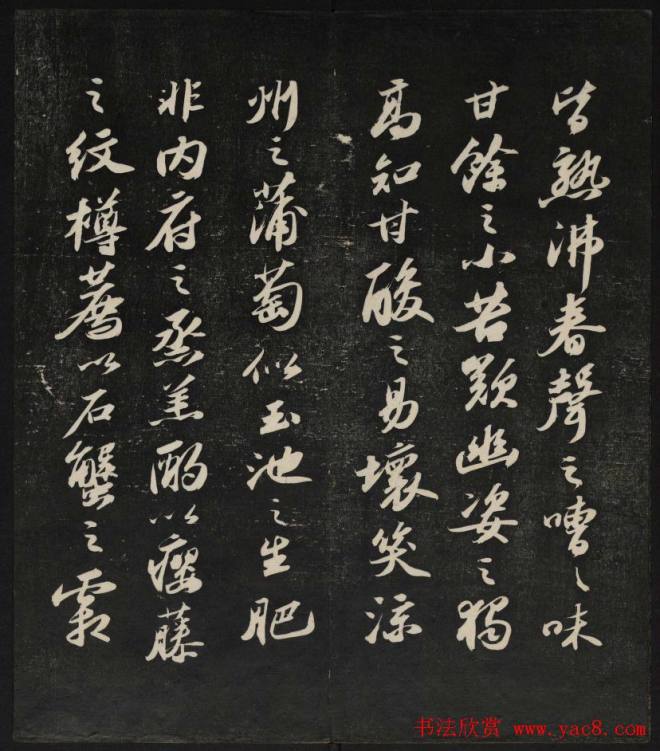 皆熟沸春聲之嘈〻味
甘餘之小苦歎幽姿之獨
高知甘酸之易壞笑涼
州之蒲萄似玉池之生肥
非内府之烝羔酌以癭藤
之紋樽薦以石蟹之霜
书法欣赏 www.yac8.com